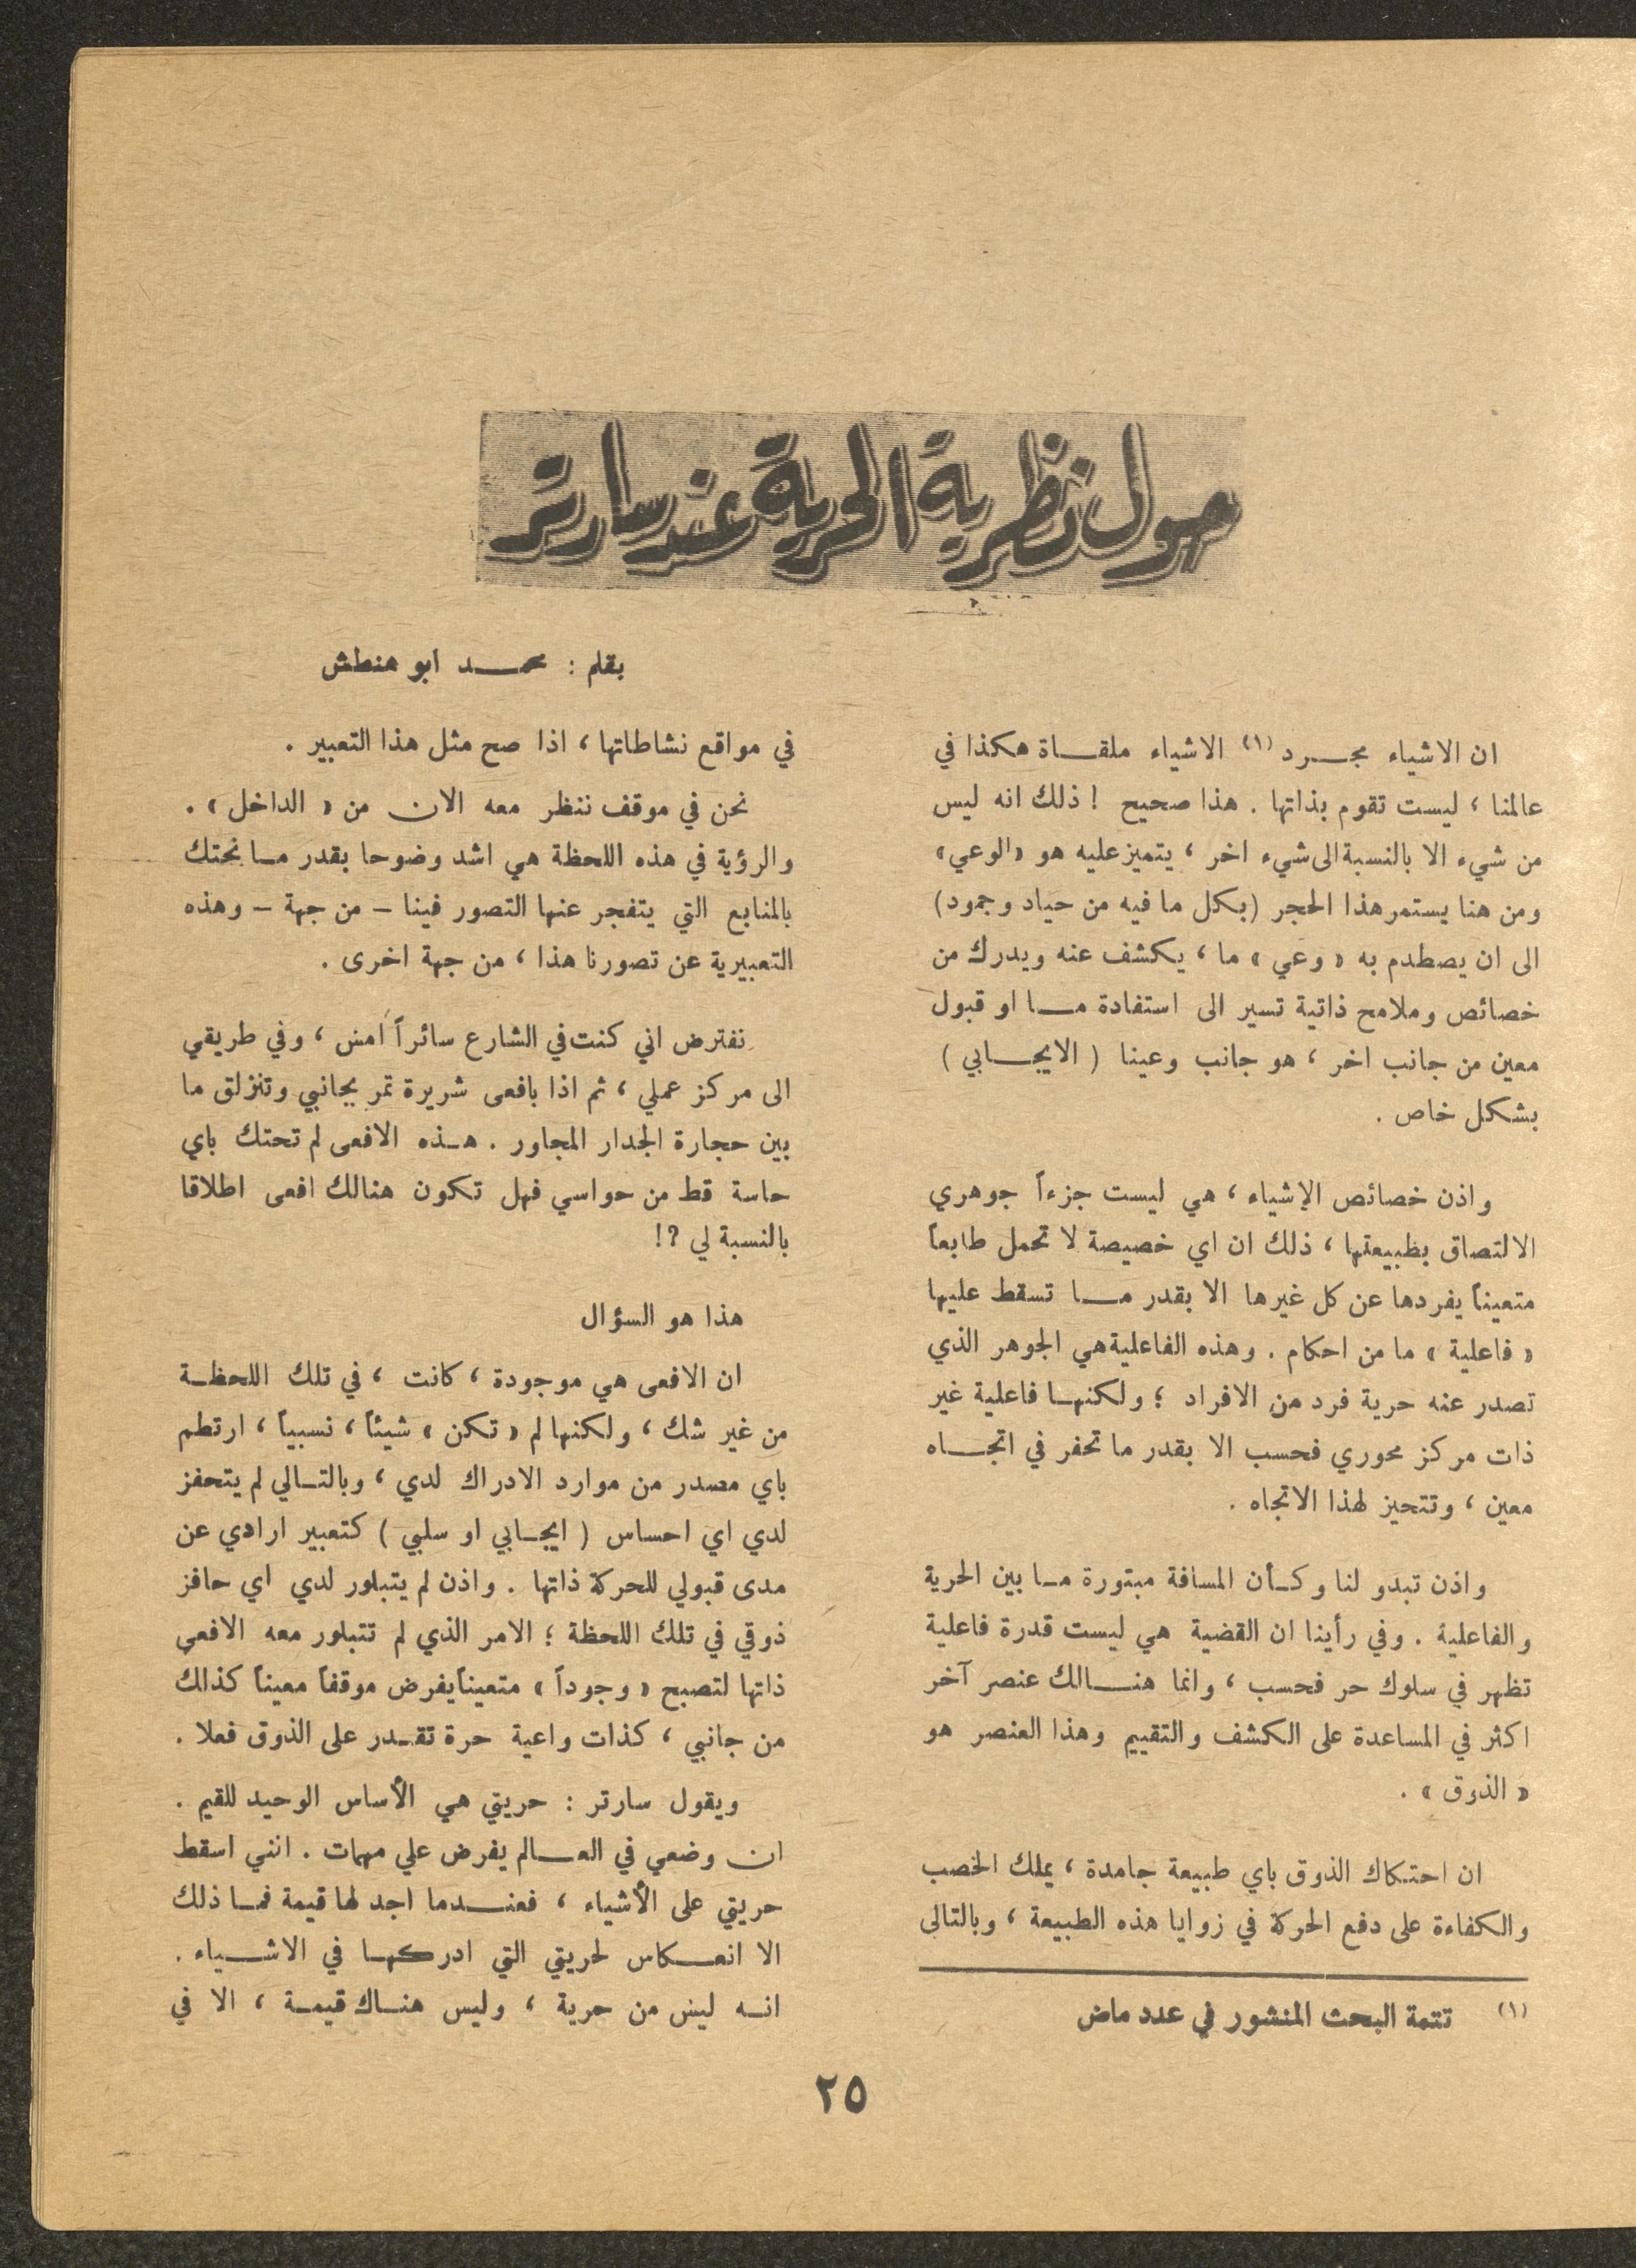 حول نظرية الحرية عند سارتر
بقلم : محمد ابو هنطش
ان الاشياء مجرد (١) الاشياء ملقاة هكذا في
عالمنا ، ليست تقوم بذاتها . هذا صحيح ! ذلك انه ليس
من شيء الا بالنسبة الى شيء اخر ، يتميز عليه هو «الوعي»
ومن هنا يستمر هذا الحجر (بكل ما فيه من حياد وجمود)
الى ان يصطدم به « وعي » ما ، يكشف عنه ويدرك من
خصائص وملامح ذاتية تسير الى استفادة ما او قبول
معين من جانب اخر ، هو جانب وعينا ( الايجابي )
بشكل خاص .
واذن خصائص الاشياء ، هي ليست جزءاً جوهري
الالتصاق بطبيعتها ، ذلك ان اي خصيصة لا تحمل طابعاً
متعيناً يفردها عن كل غيرها الا بقدر ما تسقط عليها
« فاعلية » ما من احكام . وهذه الفاعلية هي الجوهر الذي
تصدر عنه حرية فرد من الافراد ؛ ولكنها فاعلية غير
ذات مركز محوري فحسب الا بقدر ما تحفر في اتجاه
معين ، وتتحيز لهذا الاتجاه .
واذن تبدو لنا وكأن المسافة مبتورة ما بين الحرية
والفاعلية . وفي رأينا ان القضية هي ليست قدرة فاعلية
تظهر في سلوك حر فحسب ، وانما هنالك عنصر آخر
اكثر في المساعدة على الكشف والتقييم وهذا العنصر هو
« الذوق » .
ان احتكاك الذوق باي طبيعة جامدة ، يملك الخصب
والكفاءة على دفع الحركة في زوايا هذه الطبيعة ، وبالتالى
(١) تتمة البحث المنشور في عدد ماض
في مواقع نشاطاتها ، اذا صح مثل هذا التعبير .
نحن في موقف ننظر معه الان من « الداخل » .
والرؤية في هذه اللحظة هي اشد وضوحا بقدر ما نحتك
بالمنابع التي يتفجر عنها التصور فينا – من جهة – وهذه
التعبيرية عن تصورنا هذا ، من جهة اخرى .
نفترض اني كنت في الشارع سائراً امس ، وفي طريقي
الى مركز عملي ، ثم اذا بافعى شريرة تمر بجانبي وتنزلق ما
بين حجارة الجدار المجاور . هذه الافعى لم تحتك باي
حاسة قط من حواسي فهل تكون هنالك افعى اطلاقا
بالنسبة لي ؟!
هذا هو السؤال
ان الافعى هي موجودة ، كانت ، في تلك اللحظة
من غير شك ، ولكنها لم « تكن » شيئاً ، نسبياً ، ارتطم
باي مصدر من موارد الادراك لدي ، وبالتالي لم يتحفز
لدي اي احساس ( ايجابي او سلبي ) كتعبير ارادي عن
مدى قبولي للحركة ذاتها . واذن لم يتبلور لدي اي حافز
ذوقي في تلك اللحظة ؛ الامر الذي لم تتبلور معه الافعى
ذاتها لتصبح « وجوداً » متعيناً يفرض موقفاً معيناً كذالك
من جانبي ، كذات واعية حرة تقدر على الذوق فعلا .
ويقول سارتر : حريتي هي الأساس الوحيد للقيم .
ان وضعي في العالم يفرض علي مهمات . انني اسقط
حريتي على الأشياء ، فعندما اجد لها قيمة فما ذلك
الا انعكاس لحريتي التي ادركها في الاشياء .
انه ليس من حرية ، وليس هناك قيمة ، الا في
٢٥